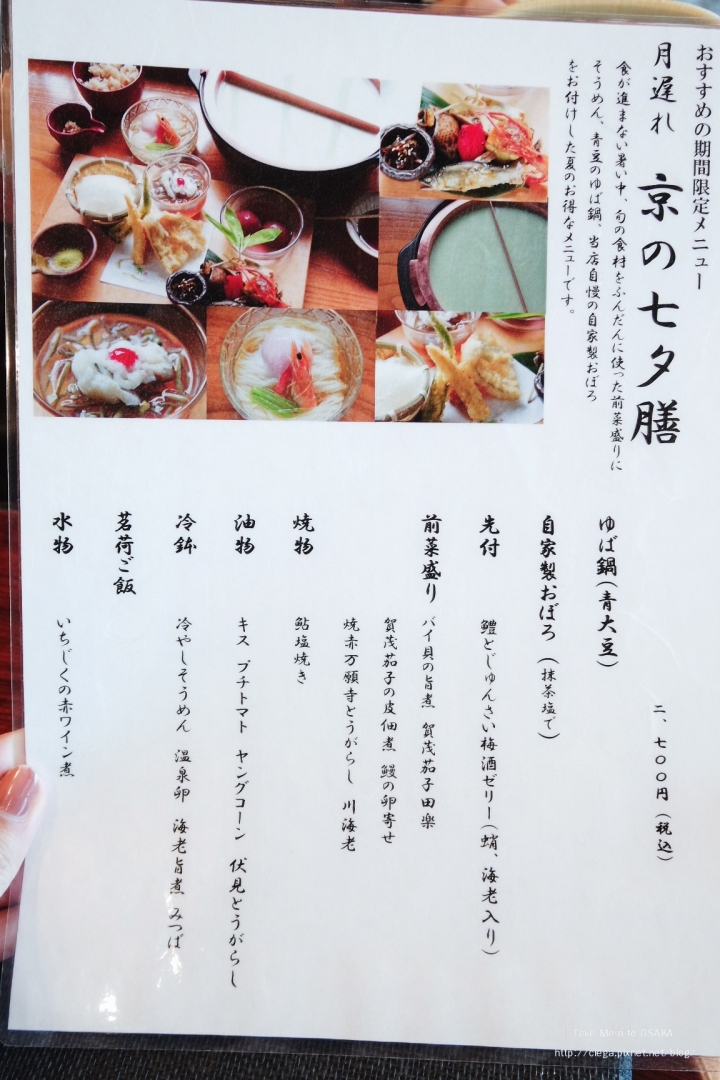 おすすめの期間限定メニュー
月遅れ 京の七夕膳
食が進まない暑い中、旬の食材をふんだんに使った前菜盛りに
そうめん、青豆のゆば鍋、当店自慢の自家製おぼろ
をお付けした夏のお得なメニューです。
二、七〇〇円(税込)
ゆば鍋(青大豆)
自家製おぼろ(抹茶塩で)
先付 鱧とじゅんさい梅酒ゼリー(蛸、海老入り)
前菜盛り バイ貝の旨煮 賀茂茄子田楽
賀茂茄子の皮佃煮 鰻の卵寄せ
焼赤万願寺とうがらし 川海老
焼物 鮎塩焼き
油物 キス プチトマト ヤングコーン 伏見とうがらし
冷鉢 冷やしそうめん 温泉卵 海老旨煮 みつば
茗荷ご飯
水物 いちじくの赤ワイン煮
http://ciega.pixnet.net/blog